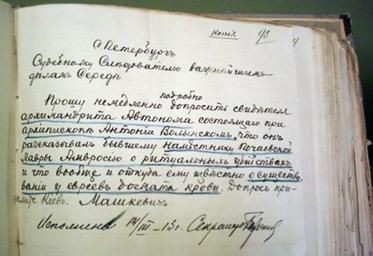 Копія 93
С Петербургъ
Судебному Слѣдователю важнѣйшимъ
дѣламъ Середѣ
подробно
Прошу немедленно допросить свидѣтеля
архимандрита Автонома состоящаго при
архіепископѣ Антоніи Волынскомъ, что онъ
разсказывалъ бывшему намѣстнику Почаевской
лавры Амвросію о ритуальныхъ убійствахъ
и что вообще и откуда ему извѣстно о существо
ваніи у евреевъ догмата крови. Допросъ при-
шлите Кіевъ. Машкевичъ.
Исполнено 14/III-13 г. Секретарь